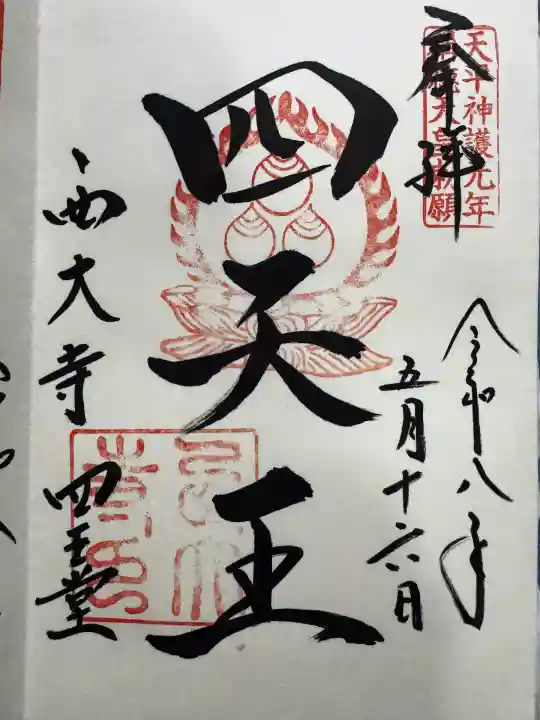 奉拝
天平神護元年
称徳天皇勅願
令和八年
五月十六日
四天王
西大寺
四王堂